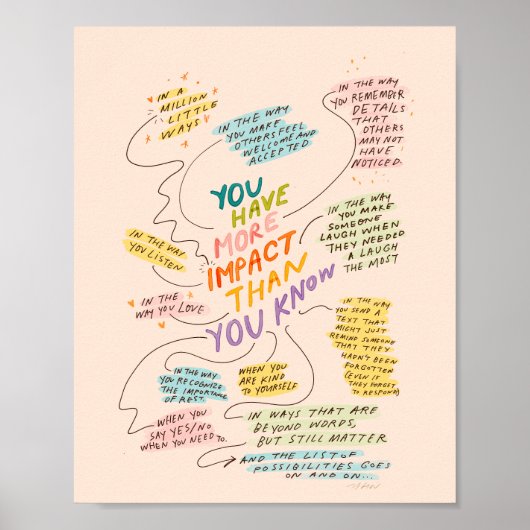 IN A
MILLION
LITTLE
WAYS
IN THE WAY
YOU MAKE
OTHERS FEEL
WELCOME AND
ACCEPTED
IN THE WAY
YOU REMEMBER
DETAILS
THAT
OTHERS
MAY NOT
HAVE
NOTICED.
YOU
HAVE
MORE
IMPACT
THAN
YOU KNOW
IN THE WAY
YOU MAKE
SOMEONE
LAUGH WHEN
THEY NEEDED
A LAUGH
THE MOST
IN THE WAY
YOU LISTEN
IN THE
WAY YOU LOVE
IN THE WAY
YOU SEND A
TEXT THAT
MIGHT JUST
REMIND SOMEONE
THAT THEY
HADN'T BEEN
FORGOTTEN
(EVEN IF
THEY FORGET
TO RESPOND)
IN THE WAY
YOU RECOGNIZE
THE IMPORTANCE
OF REST.
WHEN YOU
ARE KIND
TO YOURSELF
WHEN YOU
SAY YES/NO
WHEN YOU NEED TO.
IN WAYS THAT ARE
BEYOND WORDS,
BUT STILL MATTER
AND THE LIST OF
POSSIBILITIES GOES
ON AND ON...